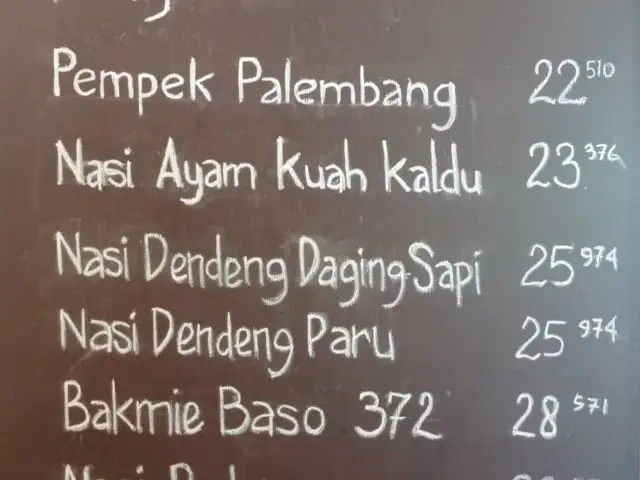 Pempek Palembang 22 510
Nasi Ayam Kuah Kaldu 23 376
Nasi Dendeng Daging Sapi 25 974
Nasi Dendeng Paru 25 974
Bakmie Baso 372 28 571
Nasi